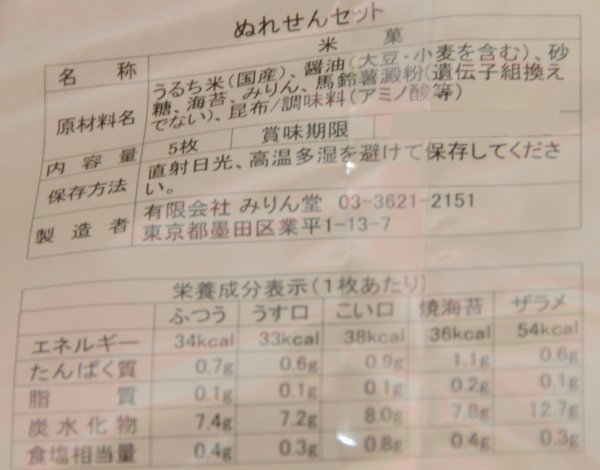 ぬれせんセット
名称 米菓
原材料名 うるち米(国産)、醤油(大豆・小麦を含む)、砂
糖、海苔、みりん、馬鈴薯澱粉(遺伝子組換え
でない)、昆布/調味料(アミノ酸等)
内容量 5枚 賞味期限
保存方法 直射日光、高温多湿を避けて保存してくださ
い。
製造者 有限会社 みりん堂 03-3621-2151
東京都墨田区業平1-13-7
栄養成分表示(1枚あたり)
ふつう うす口 こい口 焼海苔 ザラメ
エネルギー 34kcal 33kcal 38kcal 36kcal 54kcal
たんぱく質 0.7g 0.6g 0.9g 1.1g 0.6g
脂質 0.1g 0.1g 0.1g 0.2g 0.1g
炭水化物 7.4g 7.2g 8.0g 7.8g 12.7g
食塩相当量 0.4g 0.3g 0.8g 0.4g 0.3g